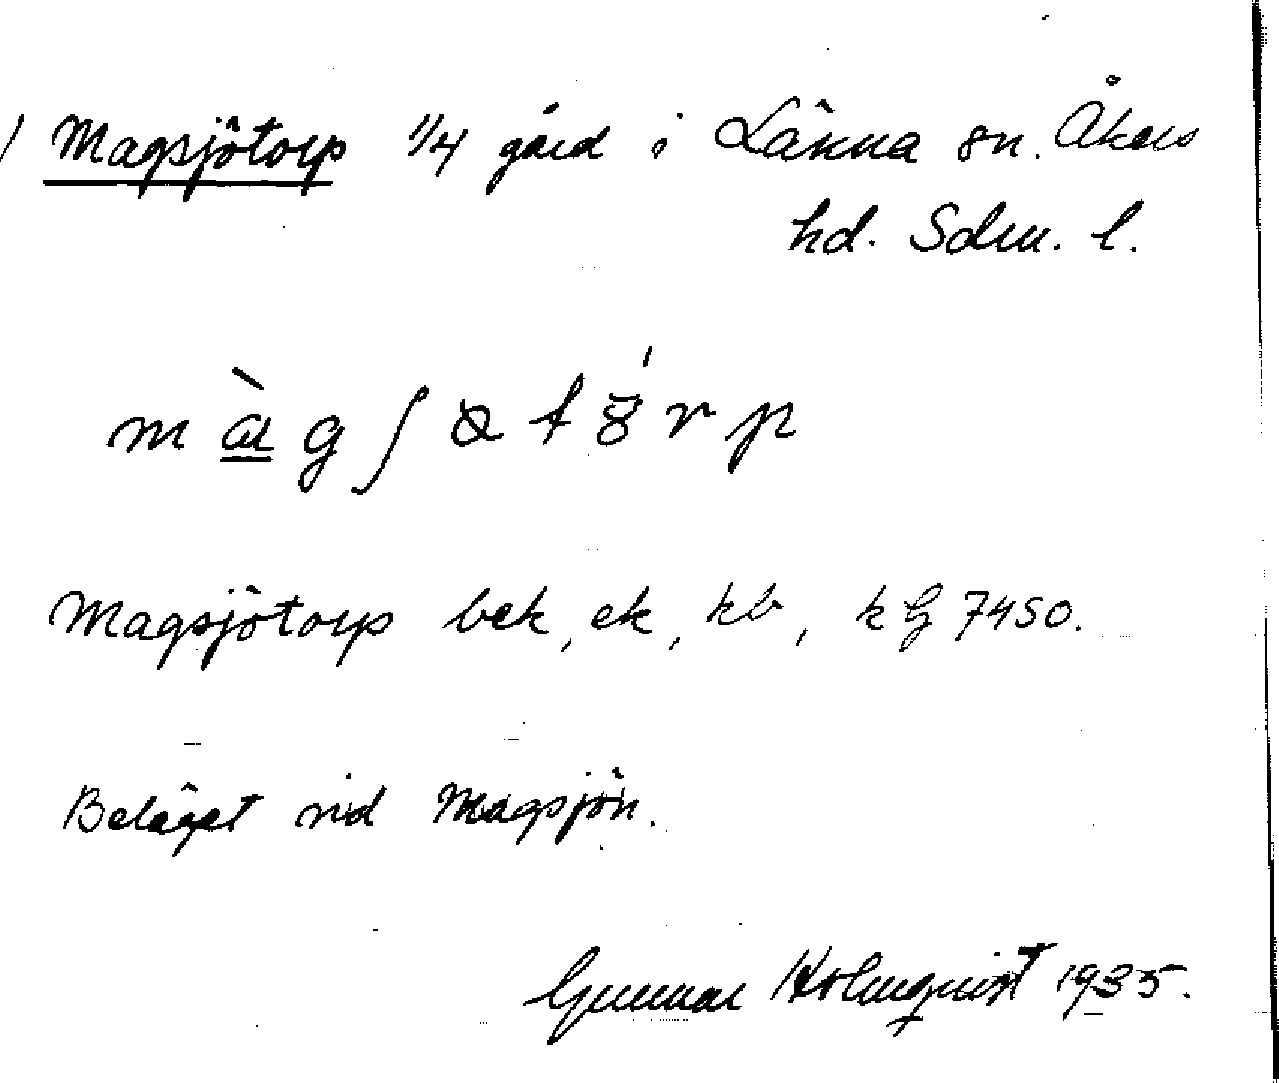 / Magsjötorp 1/4 gård i Länna sn. Åkers
hd. Sdm. l.
Magsjötorp bek, ek, kb, kG 7450.
Beläget vid Magsjön.
Gunnar Holmqvist 1935.